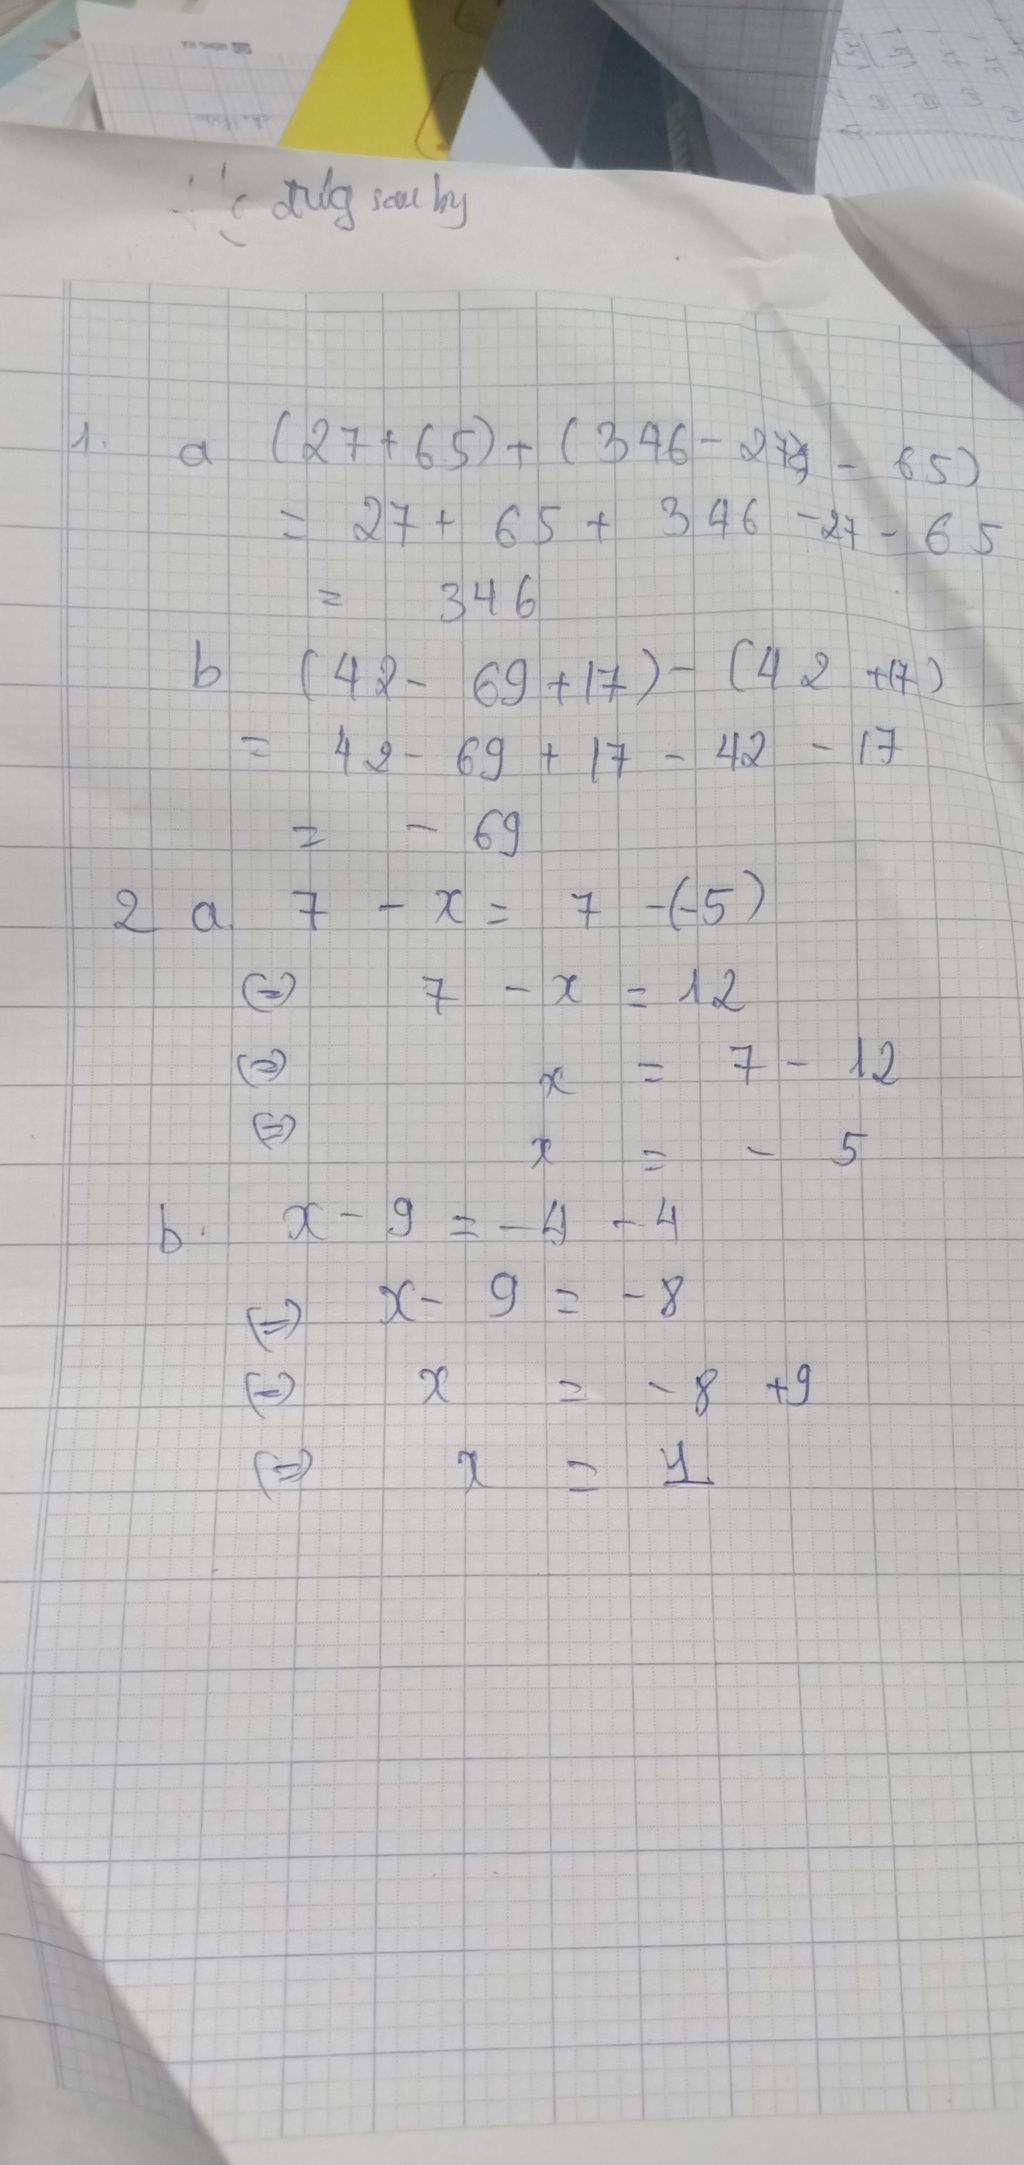 1. a (27+65)+(346-27-65)
= 27+ 65 + 346 -27- 65
= 346
b (42- 69+17)-(42 +17)
= 42- 69 + 17 - 42 - 17
= - 69
2 a. 7 - x = 7 -(-5)
(=) 7 - x = 12
(=) x = 7 - 12
(=) x = - 5
b. x - 9 = -4 - 4
(=) x - 9 = - 8
(=) x = - 8 +9
(=) x = 1